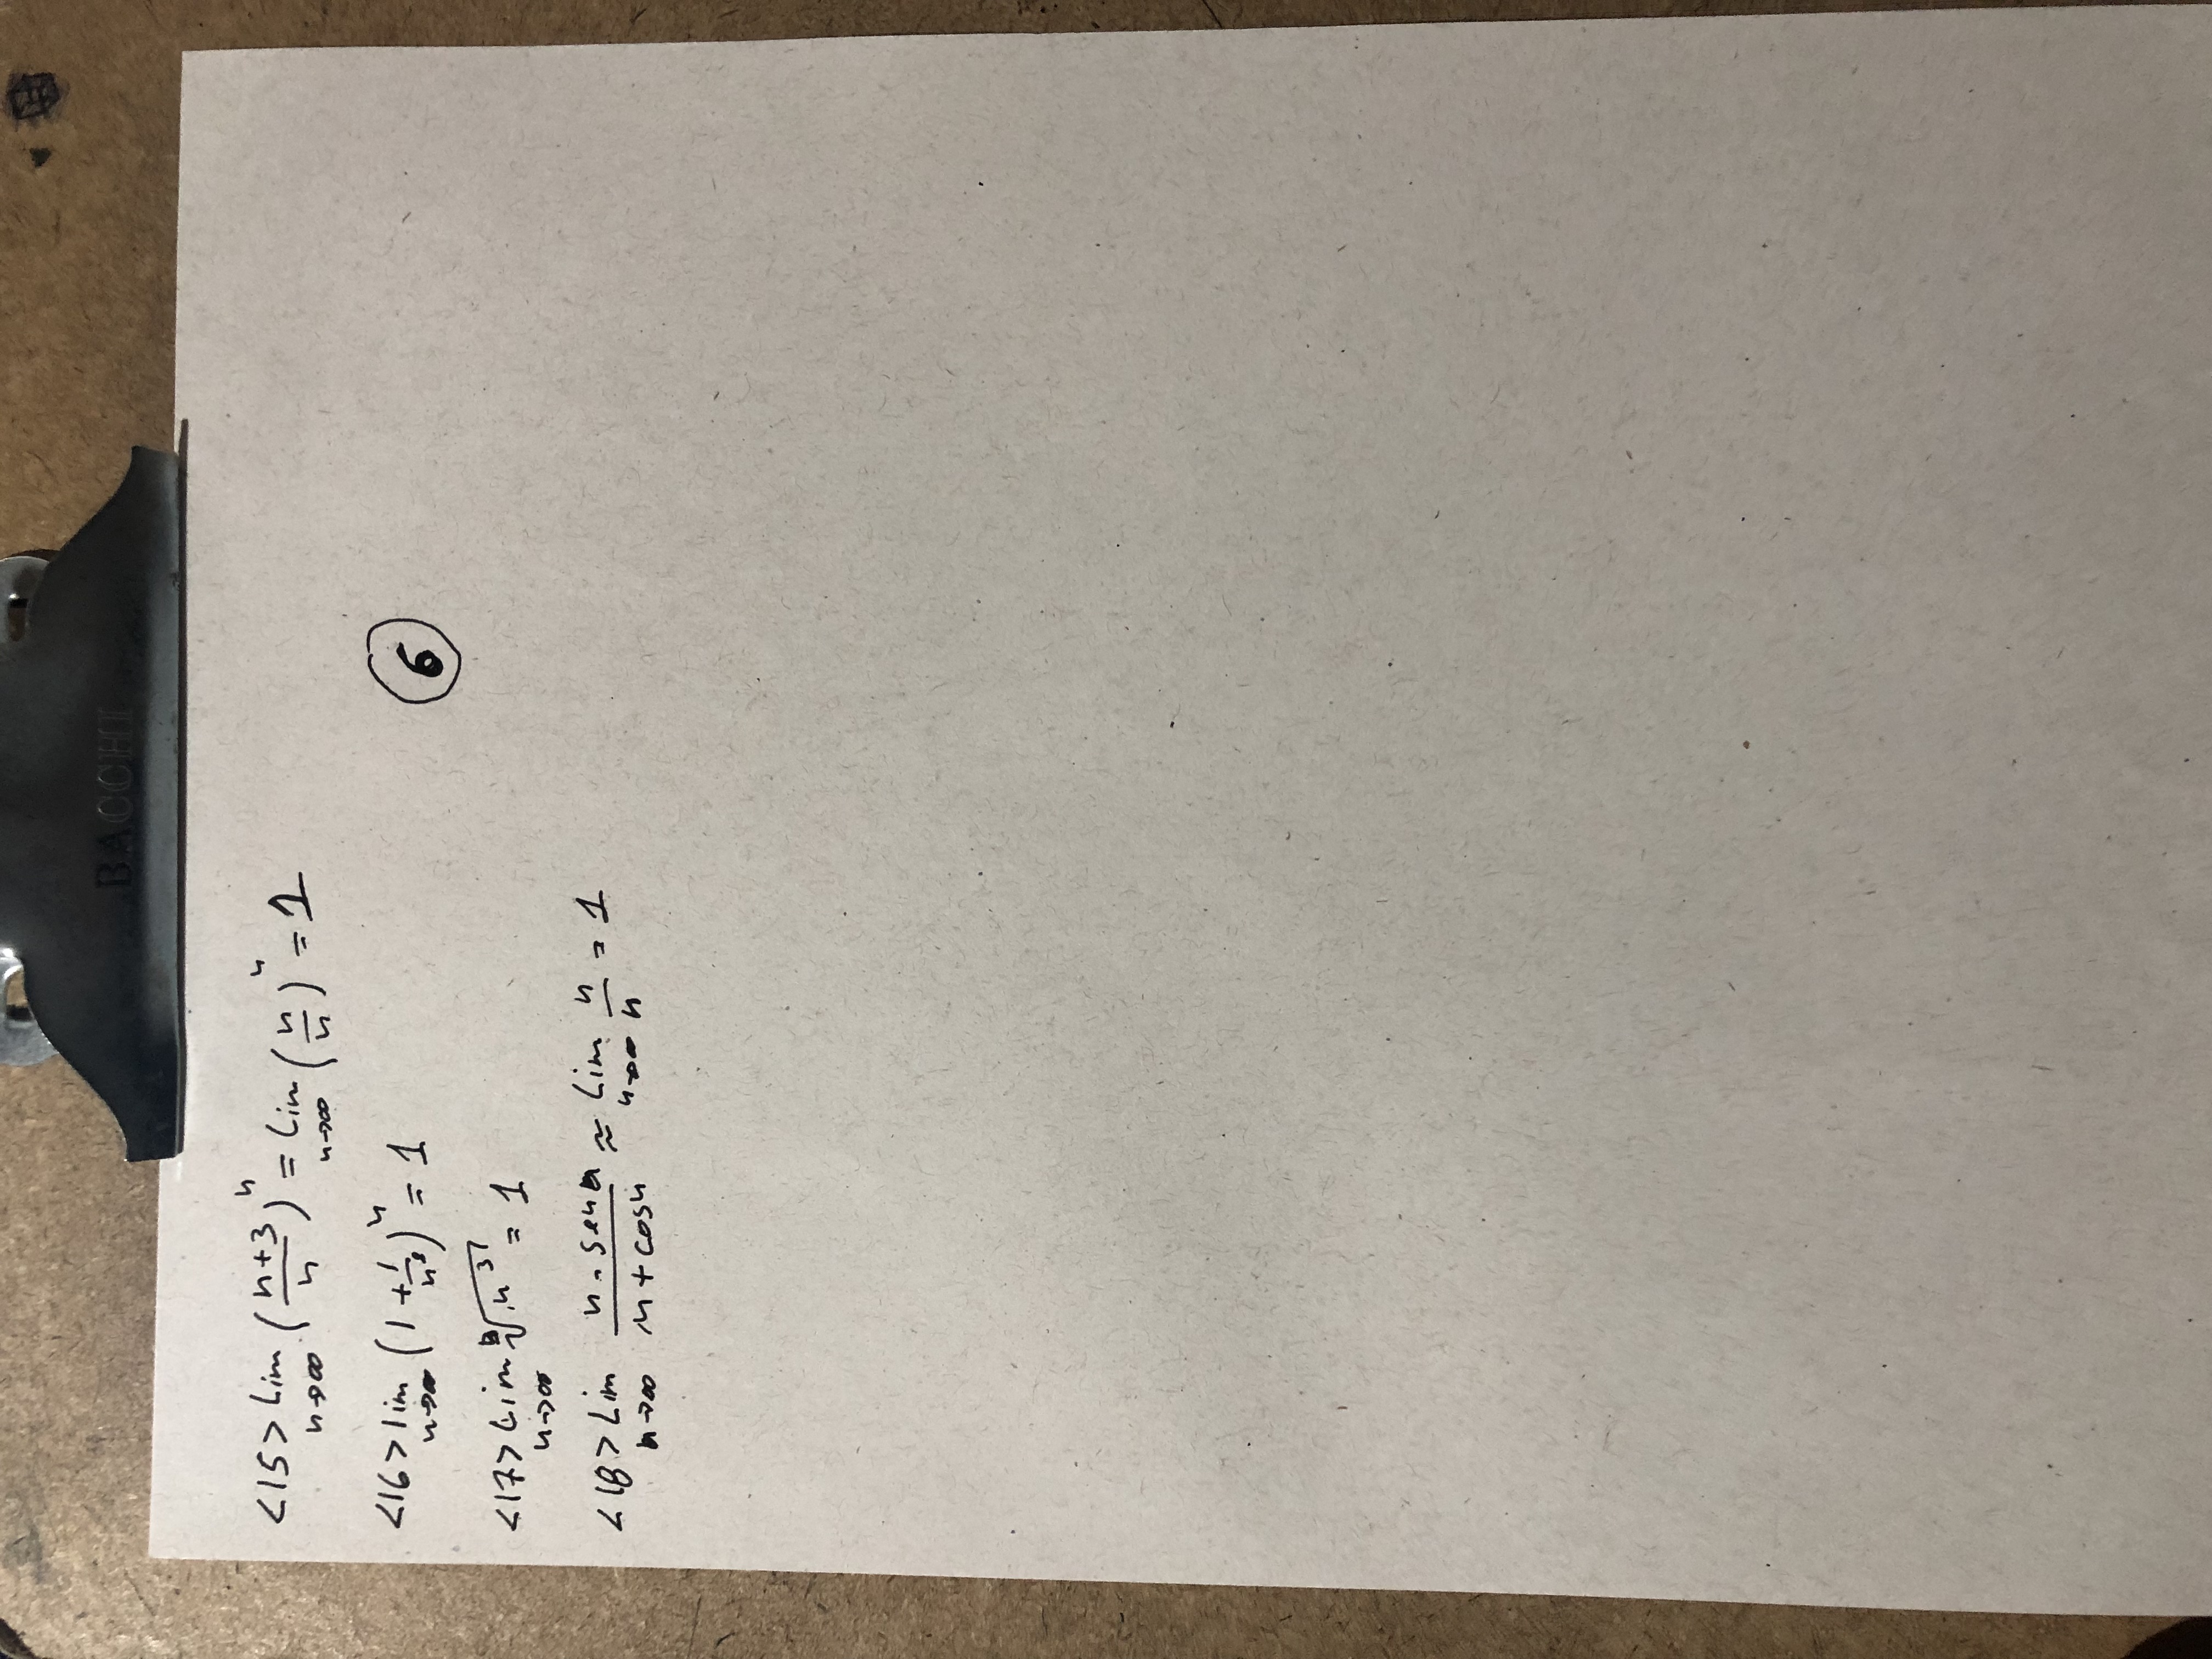 BACCHI
<15> Lim n→∞ ((n+3)/n)^n = Lim n→∞ (n/n)^n = 1
<16> lim n→∞ (1 + 1/n³)^n = 1
6
<17> Lim n→∞ ⁿ√(n³) = 1
<18> Lim n→∞ (n - sen n)/(n + cos n) ≈ Lim n→∞ n/n = 1